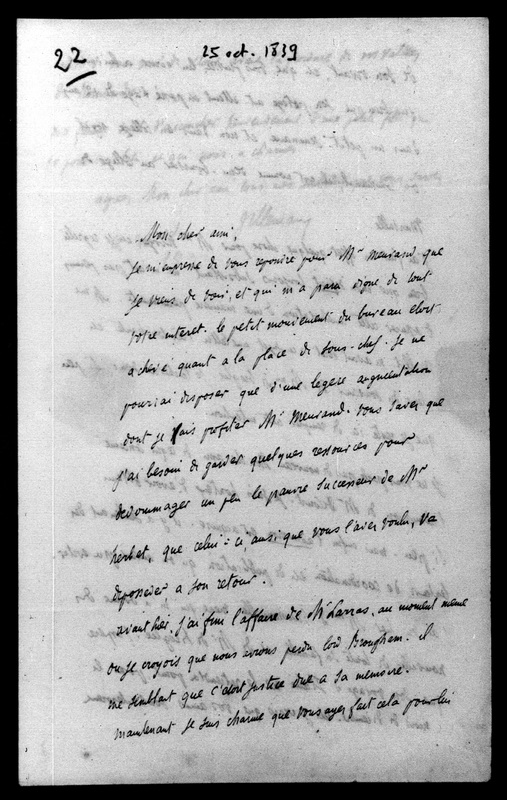 22
25 oct. 1839
Mon cher ami,
Je m'empresse de vous repondre pour Mr Meurand que
je viens de voir, et qui m'a paru digne de tout
votre interet. le petit mouvement du bureau etoit
achevé quant a la place de sous-chef. je ne
pourrai disposer que d'une legere augmentation
dont je fais profiter Mr Meurand. vous savez que
j'ai besoin de garder quelques ressources pour
dedommager un peu le pauvre successeur de Mr
herbet, que celui-ci, ainsi que vous l'avez voulu, va
deposseder a son retour.
avant hier, j'ai fini l'affaire de Mr Larras, au moment meme
ou je croyois que nous avions perdu lord Brougham. il
me sembloit que c'etoit justice due a sa memoire.
maintenant je suis charmé que vous ayez fait cela pour lui